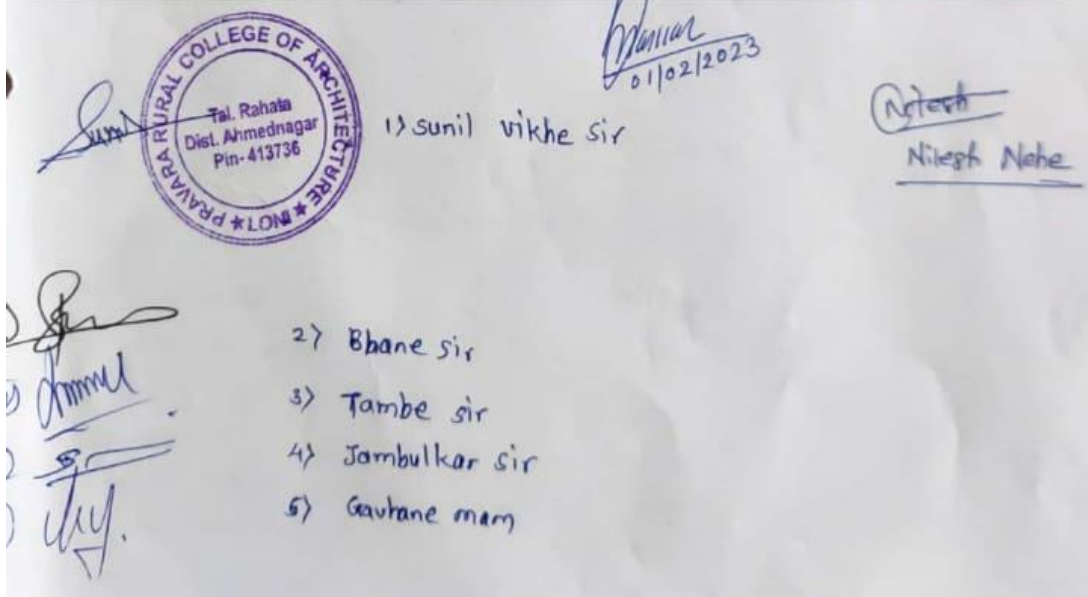 01/02/2023
PRAVARA RURAL COLLEGE OF ARCHITECTURE * LONI *
Tal. Rahata
Dist. Ahmednagar
Pin-413736
1) sunil vikhe sir
Nilesh
Nilesh Nehe
2) Bhane sir
3) Tambe sir
4) Jambulkar sir
5) Gavhane mam